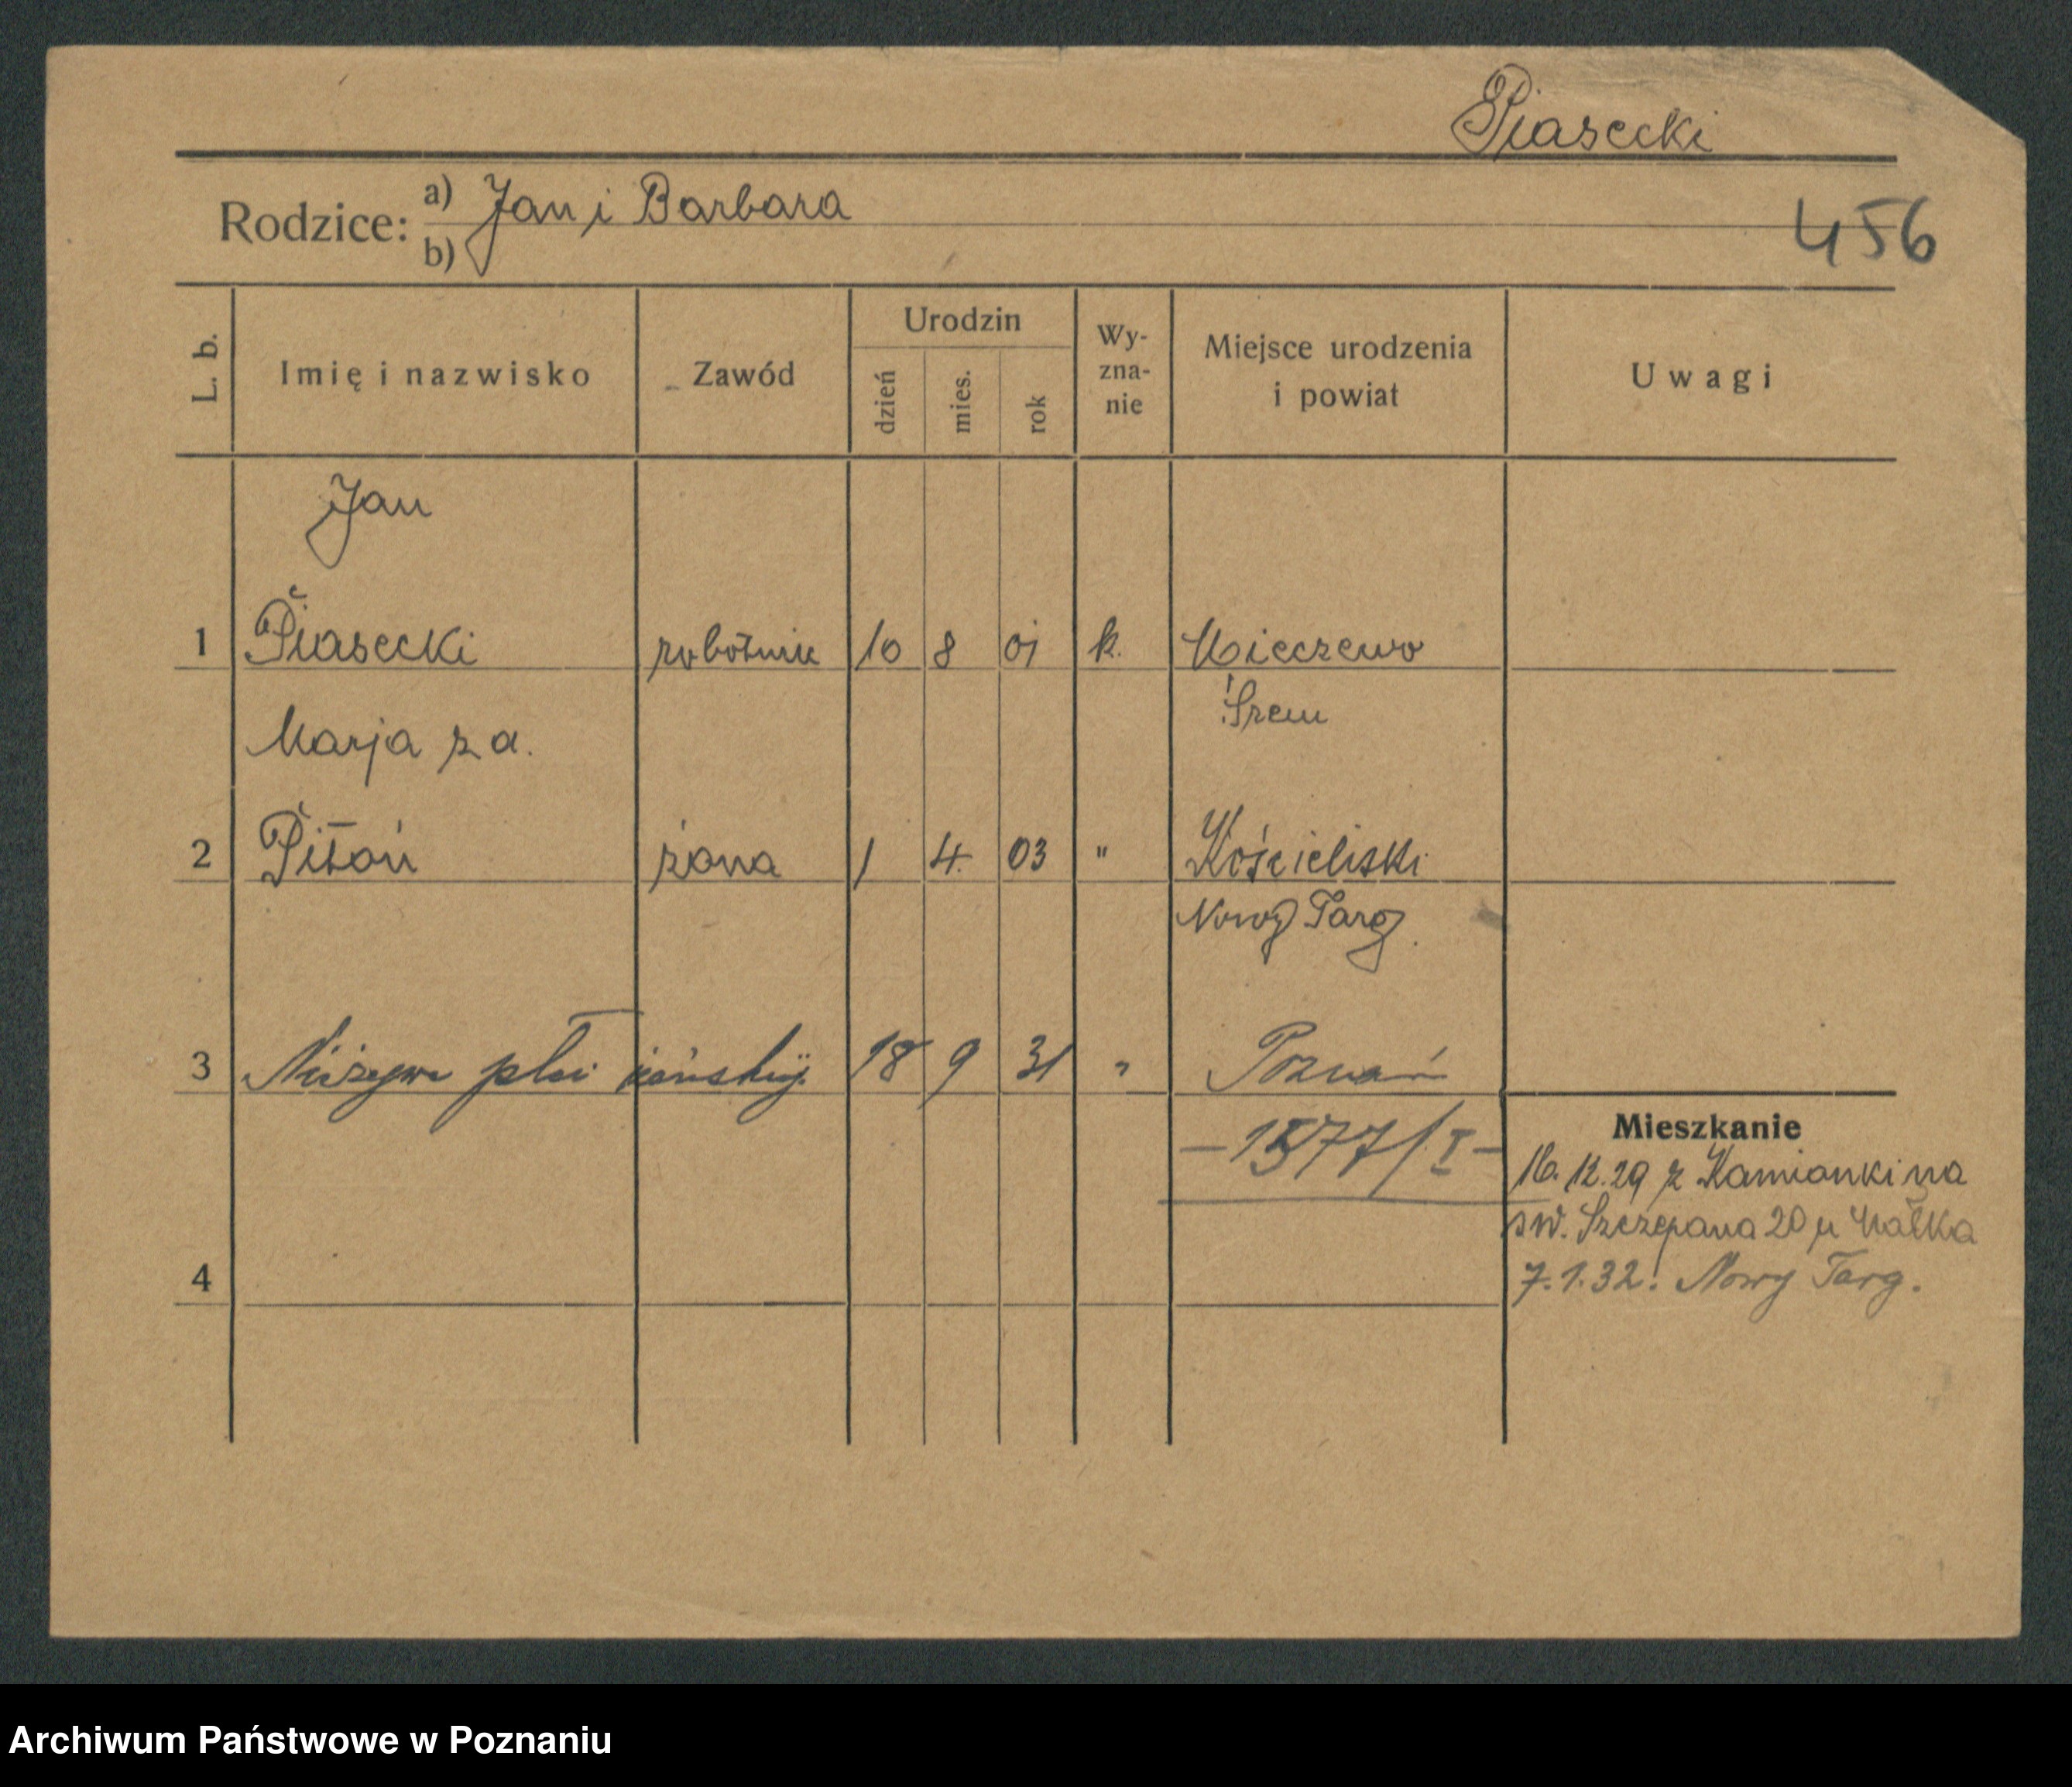 Piasecki
Rodzice: a) Jan i Barbara
b)
456
L. b.
Imię i nazwisko
Zawód
Urodzin
dzień
mies.
rok
Wy-
zna-
nie
Miejsce urodzenia
i powiat
Uwagi
Jan
1 Piasecki robotnik 10 8 01 k. Mieczewo
Śrem
Marja z d.
2 Pitoń żona 1 4. 03 " Kościeliski
Nowy Targ.
3 Nieżywe płci żeńskiej 18 9 31 " Poznań
– 1577/I –
Mieszkanie
16.12.29 z Kamionki na
św. Szczepana 20 u
7.1.32. Nowy Targ.
4
Archiwum Państwowe w Poznaniu